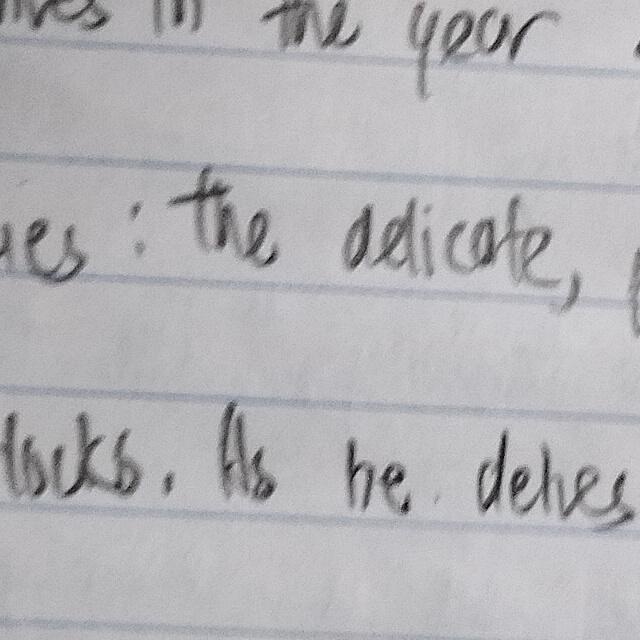 in the year
: the delicate,
locks. As he delves